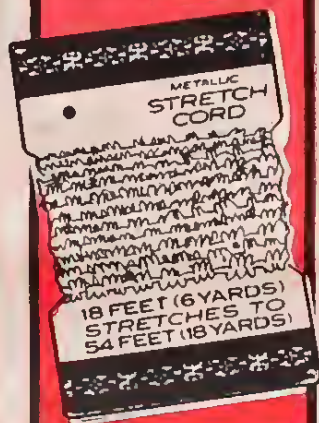 METALLIC
STRETCH
CORD
18 FEET (6 YARDS)
STRETCHES TO
54 FEET (18 YARDS)